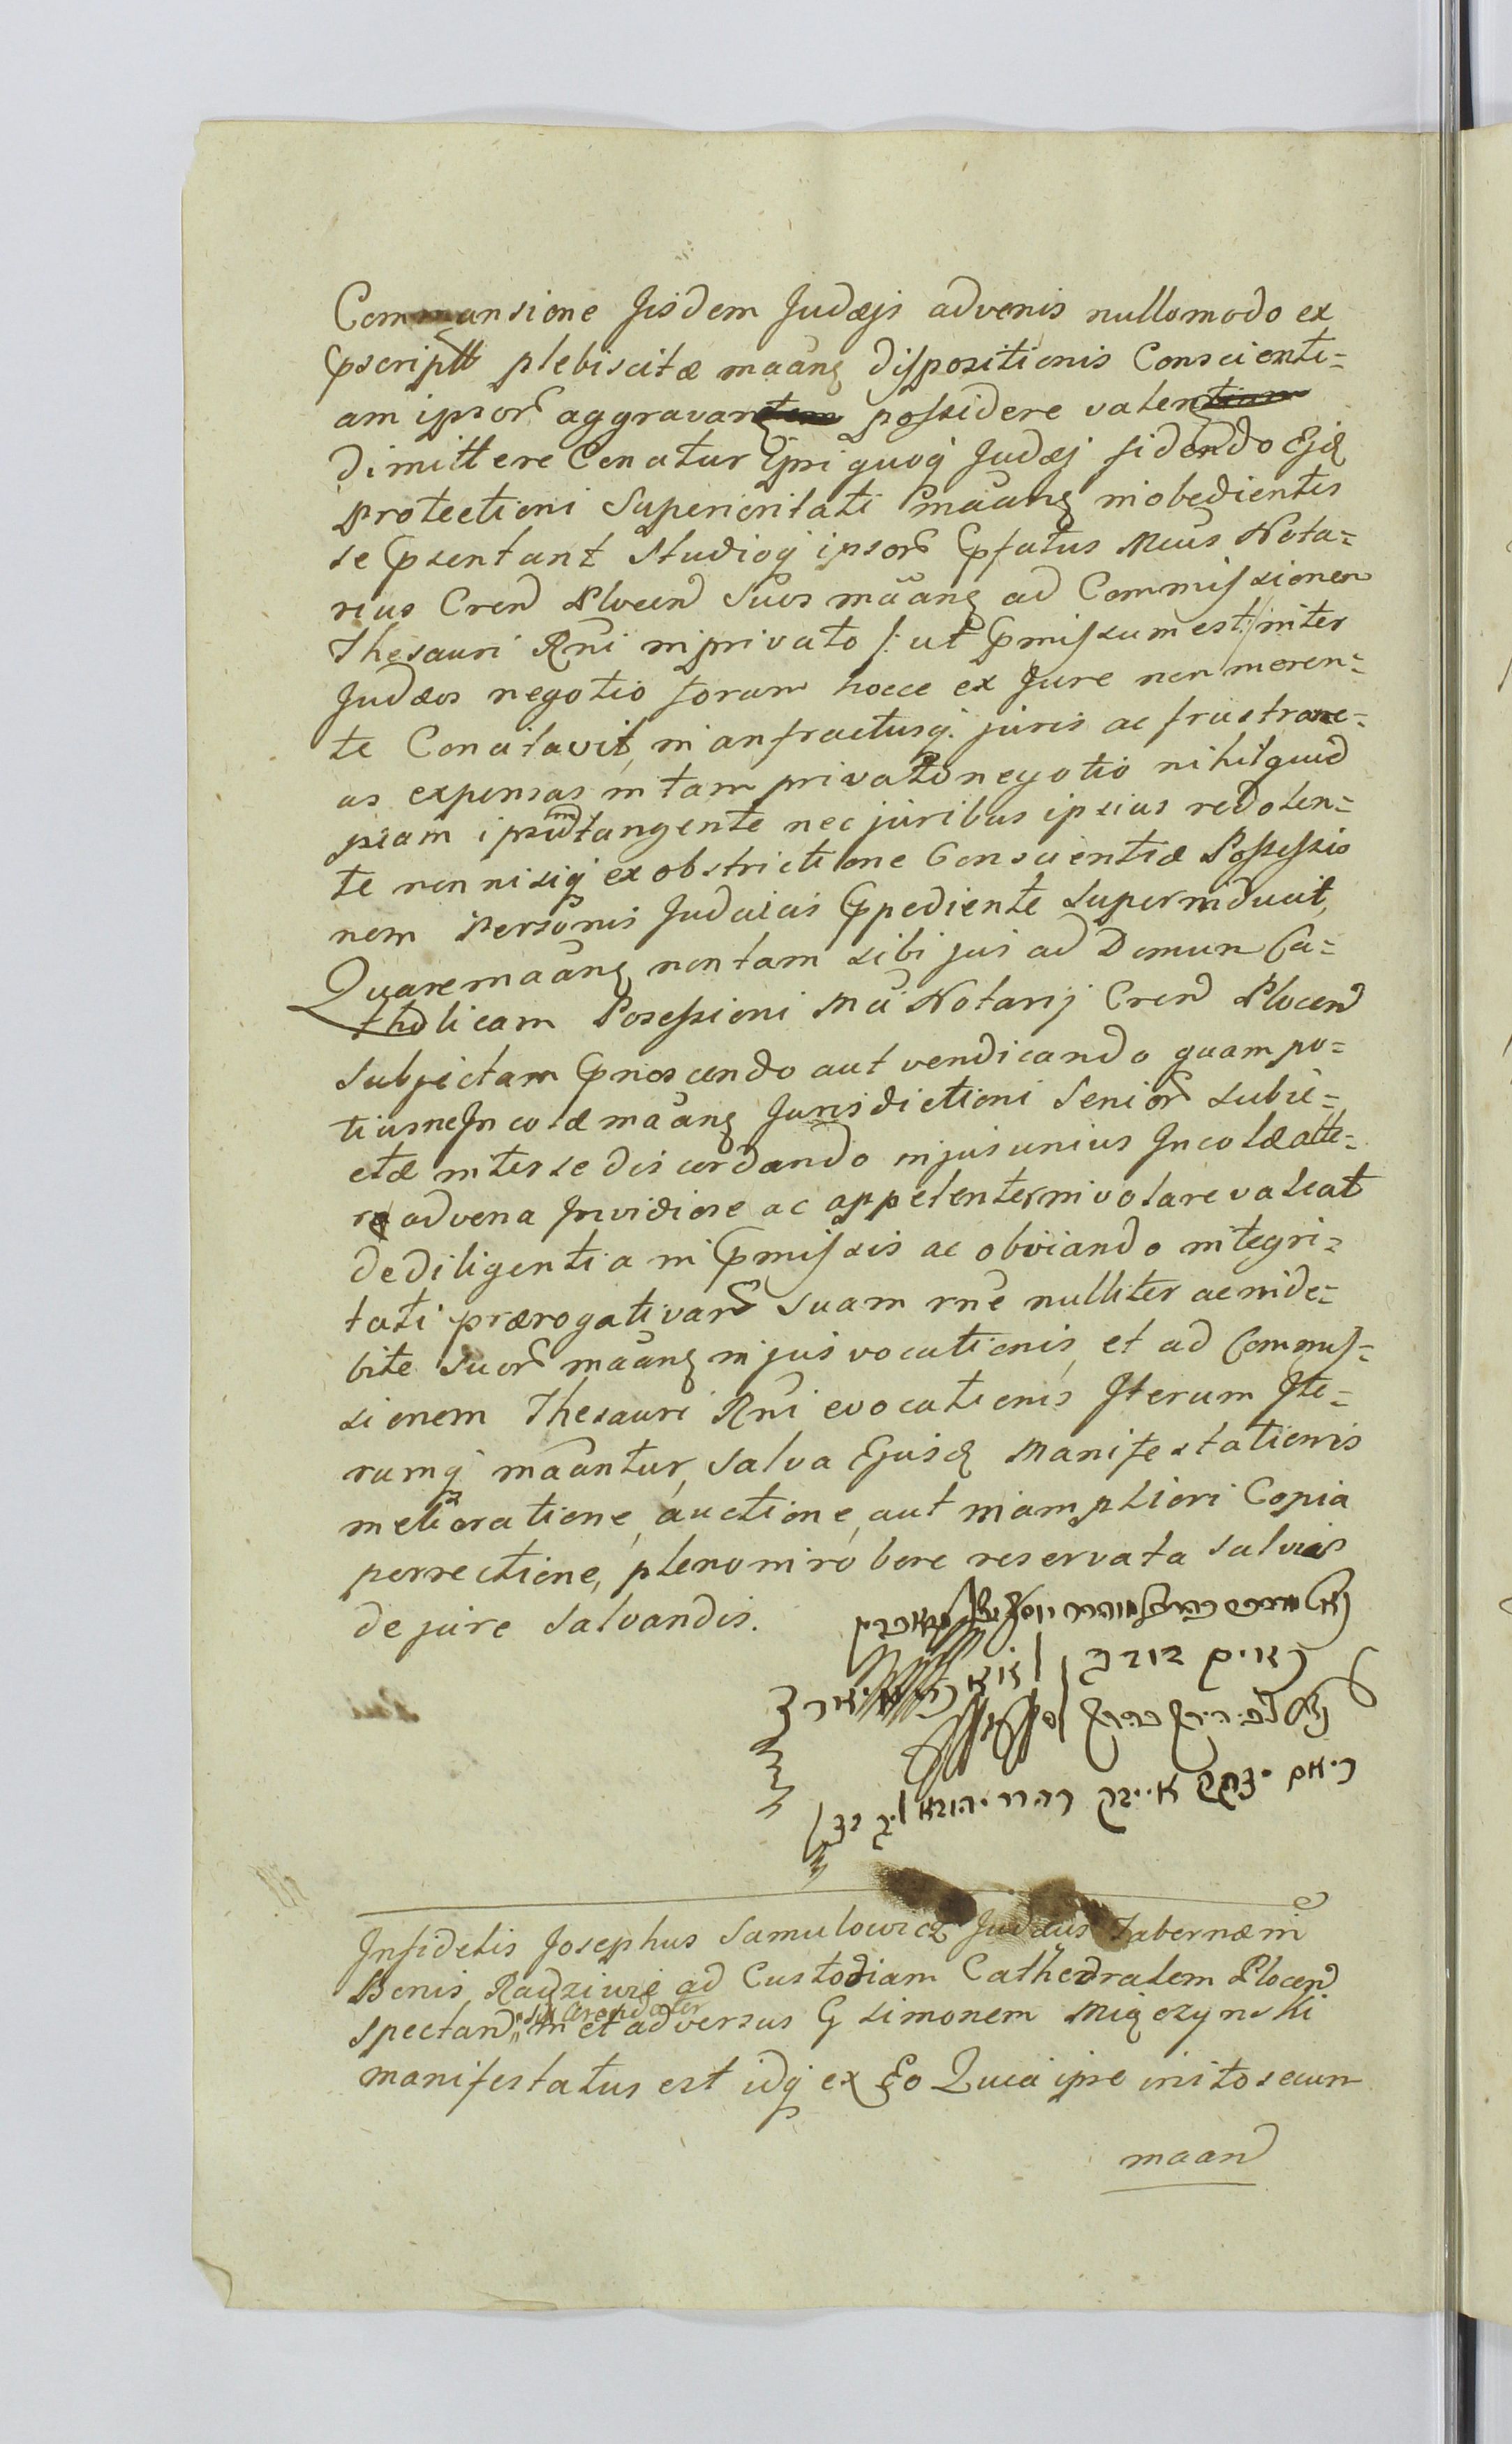 Commansione Jisdem Judæjs advenis nullomodo ex
Pscriptt plebiscitæ maang dispositionis Conscienti=
am ipsor aggravan possidere valen
dimittere Conatur Ipsi quoq Judæj fidendo Ejq
protectioni Superioritati maang inobedientes
se Psentant Studioq ipsor Pfatus Mcus Nota=
rius Cren Plocen Suos maang ad Commissionem
Thesauri Rni in privato /: ut Pmissum est :/ inter
Judæos negotio forum hocce ex Jure non meren=
te Concitavit, in anfractusq juris ac frustrane=
as expensas in tam privato negotio nihil quid
piam ipsum tangente nec juribus ipsius redolen=
te non nisiq ex obstrictione Conscientiæ Possessio
nem Personis Judaicis Ppediente Superinducit,
Quare maang non tam sibi jus ad Domum Ca=
tholicam Possessioni Mci Notarij Cren Plocen
Subjectam Pnoscendo aut vendicando quam po=
tius ne Jncolæ maang Jurisdictioni Senior subie=
ctæ inter se discordando in jus unius Jncolæ alte=
re advena Jnvidiose ac appetenter involare valeat
de diligentia in Pmissis ac obviando integri=
tati prærogativar suam rne nulliter ac inde=
bite suor maang in jus vocationis, et ad Commis=
sionem Thesauri Rni evocationis Jterum Jte=
rumq maantur, salva Ejusq Manifestationis
melioratione, auctione, aut in ampliori Copia
porrectione, pleno in robore reservata salvis
de jure salvandis.
Jnfidelis Josephus Samulowicz Judæus Tabernæ in
Bonis Radziwie ad Custodiam Cathedralem Plocen
sui Arendator
Spectan in et adversus G Simonem Miączynski
manifestatus est idq ex Eo Quia ipse inito secum
maan